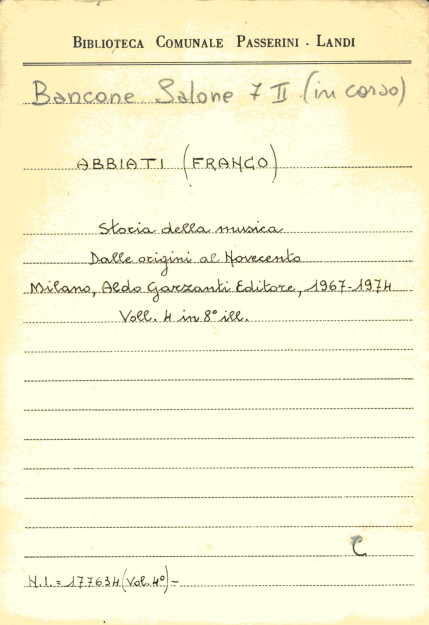 BIBLIOTECA COMUNALE PASSERINI - LANDI
Bancone Salone 7 II (in corso)
ABBIATI (FRANCO)
Storia della musica
Dalle origini al Novecento
Milano, Aldo Garzanti Editore, 1967-1974
Voll. 4 in 8° ill.
C
N.I. = 177634 (Vol. 4°) -